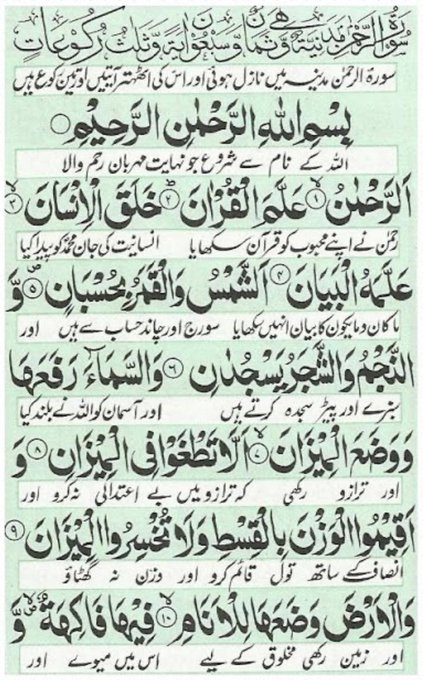 سُوْرَةُ الرَّحْمٰنِ مَدَنِيَّةٌ وَّهِيَ ثَمَانٌ وَّسَبْعُوْنَ اٰيَةً وَّثَلٰثُ رُكُوْعَاتٍ
سورۃ الرحمٰن مدینہ میں نازل ہوئی اور اس کی اٹھہتر آیتیں اور تین رکوع ہیں
بِسْمِ اللّٰهِ الرَّحْمٰنِ الرَّحِيْمِ
اللہ کے نام سے شروع جو نہایت مہربان رحم والا
اَلرَّحْمٰنُ ۙ﴿۱﴾ عَلَّمَ الْقُرْاٰنَ ؕ﴿۲﴾ خَلَقَ الْاِنْسَانَ ۙ﴿۳﴾
رحمٰن نے اپنے محبوب کو قرآن سکھایا انسانیت کی جان محمد کو پیدا کیا
عَلَّمَهُ الْبَيَانَ ﴿۴﴾ اَلشَّمْسُ وَالْقَمَرُ بِحُسْبَانٍ ۪﴿۵﴾ وَّ
ما کان وما یکون کا بیان انہیں سکھایا سورج اور چاند حساب سے ہیں اور
النَّجْمُ وَالشَّجَرُ يَسْجُدٰنِ ﴿۶﴾ وَالسَّمَآءَ رَفَعَهَا
سبزے اور پیڑ سجدہ کرتے ہیں اور آسمان کو اللہ نے بلند کیا
وَوَضَعَ الْمِيْزَانَ ۙ﴿۷﴾ اَلَّا تَطْغَوْا فِى الْمِيْزَانِ ﴿۸﴾ وَ
اور ترازو رکھی کہ ترازو میں بے اعتدالی نہ کرو اور
اَقِيْمُوا الْوَزْنَ بِالْقِسْطِ وَلَا تُخْسِرُوا الْمِيْزَانَ ﴿۹﴾
انصاف کے ساتھ تول قائم کرو اور وزن نہ گھٹاؤ
وَالْاَرْضَ وَضَعَهَا لِلْاَنَامِ ۙ﴿۱۰﴾ فِيْهَا فَاكِهَةٌ ۪ۙ وَّ
اور زمین رکھی مخلوق کے لیے اس میں میوے اور